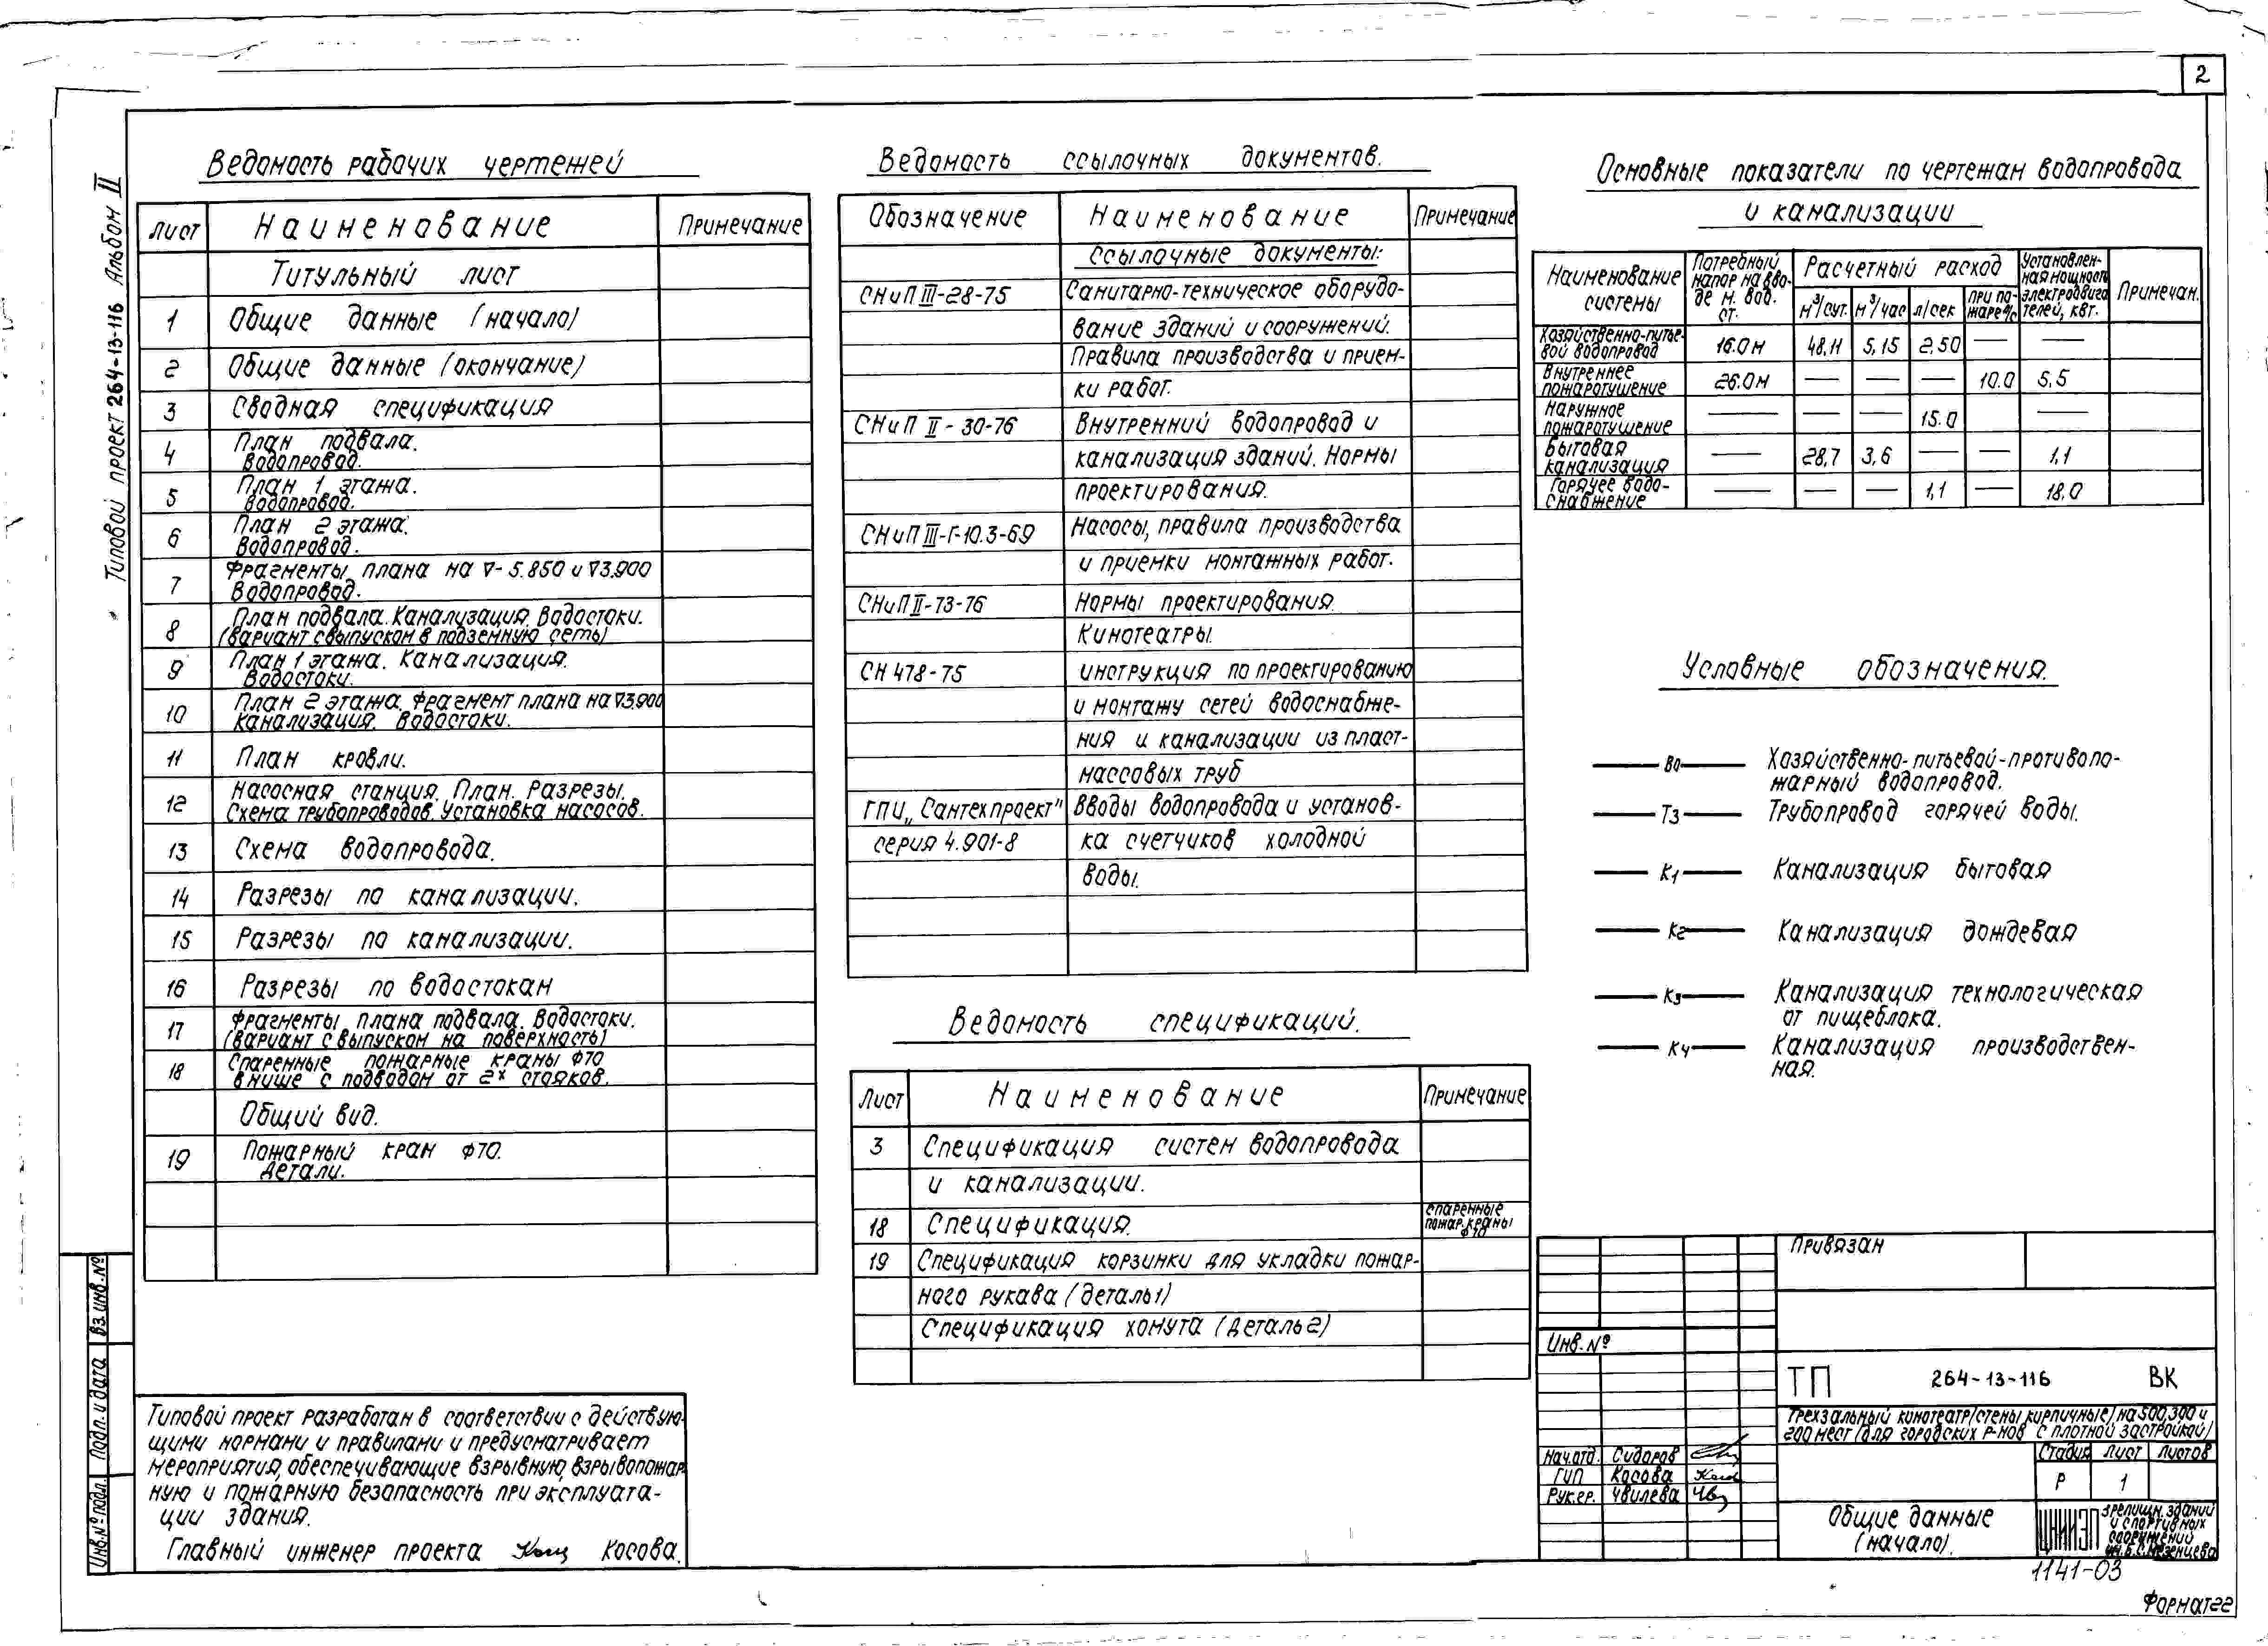 2
Типовой проект 264-13-116 Альбом II
Ведомость рабочих чертежей
Лист Наименование Примечание
Титульный лист
1 Общие данные (начало)
2 Общие данные (окончание)
3 Сводная спецификация
4 План подвала.
Водопровод.
5 План 1 этажа.
Водопровод.
6 План 2 этажа.
Водопровод.
7 Фрагменты плана на ∇-5.850 и ∇3.900
Водопровод.
8 План подвала. Канализация. Водостоки.
(вариант с выпуском в подземную сеть)
9 План 1 этажа. Канализация.
Водостоки.
10 План 2 этажа. Фрагмент плана на ∇3.900
Канализация. Водостоки.
11 План кровли.
12 Насосная станция. План. Разрезы.
Схема трубопроводов. Установка насосов.
13 Схема водопровода.
14 Разрезы по канализации.
15 Разрезы по канализации.
16 Разрезы по водостокам
17 Фрагменты плана подвала. Водостоки.
(вариант с выпуском на поверхность)
18 Спаренные пожарные краны ф70
в нише с подводом от 2х стояков.
Общий вид.
19 Пожарный кран ф70.
Детали.
Типовой проект разработан в соответствии с действую-
щими нормами и правилами и предусматривает
мероприятия, обеспечивающие взрывную, взрывопожар-
ную и пожарную безопасность при эксплуата-
ции здания.
Главный инженер проекта Косова.
Ведомость ссылочных документов.
Обозначение Наименование Примечание
Ссылочные документы:
СНиП III-28-75 Санитарно-техническое оборудо-
вание зданий и сооружений.
Правила производства и прием-
ки работ.
СНиП II-30-76 Внутренний водопровод и
канализация зданий. Нормы
проектирования.
СНиП III-Г-10.3-69 Насосы, правила производства
и приемки монтажных работ.
СНиП II-73-76 Нормы проектирования.
Кинотеатры.
СН 478-75 инструкция по проектированию
и монтажу сетей водоснабже-
ния и канализации из пласт-
массовых труб
ГПИ „Сантехпроект" Вводы водопровода и установ-
серия 4.901-8 ка счетчиков холодной
воды.
Ведомость спецификаций.
Лист Наименование Примечание
3 Спецификация систем водопровода
и канализации.
18 Спецификация. спаренные
пожар.краны
ф70
19 Спецификация корзинки для укладки пожар-
ного рукава (деталь 1)
Спецификация хомута (деталь 2)
Основные показатели по чертежам водопровода
и канализации
Наименование системы Потребный напор на вво-де м. вод. ст. Расчетный расход Установлен-ная мощность электродвига телей, квт. Примечан.
м³/сут. м³/час л/сек при по-жаре л/с
Хозяйственно-питье-вой водопровод 16.0м 48,11 5,15 2,50 — —
Внутреннее пожаротушение 26.0м — — — 10.0 5,5
Наружное пожаротушение — — — 15.0 —
Бытовая канализация — 28,7 3,6 — — 1,1
Горячее водо-снабжение — — — 1,1 — 18.0
Условные обозначения.
В0 Хозяйственно-питьевой-противопо-
жарный водопровод.
Т3 Трубопровод горячей воды.
К1 Канализация бытовая
К2 Канализация дождевая
К3 Канализация технологическая
от пищеблока.
К4 Канализация производствен-
ная.
Привязан
Инв. №
ТП 264-13-116 ВК
Трехзальный кинотеатр (стены кирпичные) на 500,300 и
200 мест (для городских р-нов с плотной застройкой)
Нач.отд. Сидоров
ГИП Косова
Рук.гр. Чвилева
Стадия Лист Листов
Р 1
Общие данные
(начало).
ЦНИИЭП зрелищн. зданий
и спортивных
сооружений
им. Б.С. Мезенцева
1141-03
Формат 22
Инв.№ подл. Подп. и дата Вз. инв.№